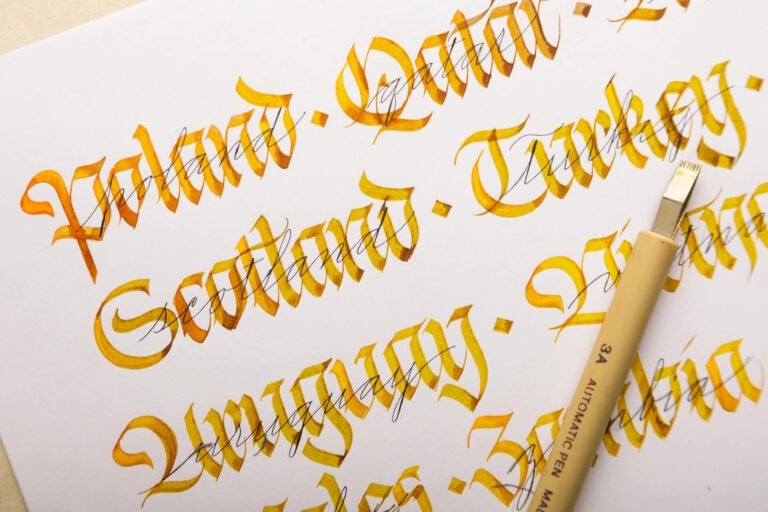 Poland · Qatar ·
poland qatar
Scotland · Turkey ·
scotland turkey
Uruguay ·
uruguay
3A AUTOMATIC PEN